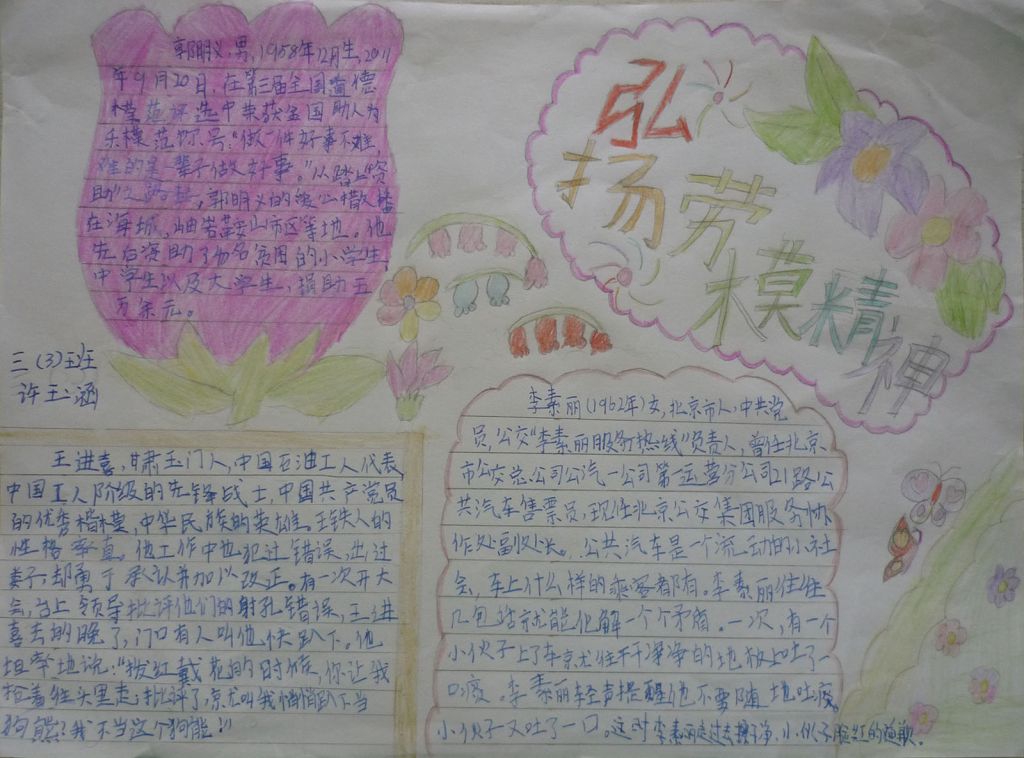 弘扬劳模精神
郭明义，男，1958年12月生，2011
年9月20日，在第三届全国道德
模范评选中荣获全国助人为
乐模范称号。“做一件好事不难
难的是一辈子做好事。”从踏上“资
助”之路起，郭明义的爱心撒播
在海城、岫岩鞍山市区等地。他
先后资助了 名贫困的小学生，
中学生以及大学生，捐助五
万余元。
三（3）班
许玉涵
王进喜，甘肃玉门人，中国石油工人代表，
中国工人阶级的先锋战士，中国共产党员
的优秀楷模，中华民族的英雄。王铁人的
性格率真。他工作中也犯过错误，出过
娄子，却勇于承认并加以改正。有一次开大
会，台上领导批评他们的射孔错误，王进
喜去的晚了，门口有人叫他快趴下。他
坦率地说：“披红戴花的时候，你让我
抢着往头里走；批评了，就叫我悄悄趴下当
狗熊？我不当这个狗熊！”
李素丽（1962年）女，北京市人，中共党
员，公交“李素丽服务热线”负责人，曾任北京
市公交总公司公汽一公司第一运营分公司21路公
共汽车售票员，现任北京公交集团服务协
作处副处长。公共汽车是一个流动的小社
会，车上什么样的乘客都有。李素丽往往
几句话就能化解一个个矛盾。一次，有一个
小伙子上了车就往干干净净的地板上吐了一
口痰。李素丽轻声提醒他不要随地吐痰。
小伙子又吐了一口。这时李素丽走过去擦净，小伙子脸红的道歉。